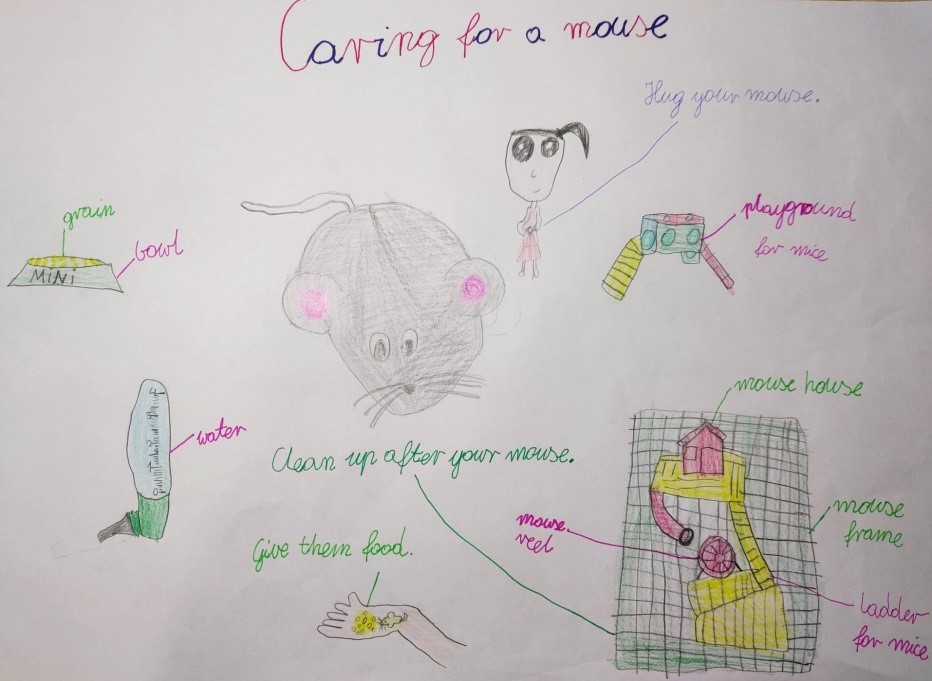 Caring for a mouse
Hug your mouse.
grain
bowl
MiNi
playground
for mice
water
Clean up after your mouse.
Give them food.
mouse house
mouse
frame
mouse
veel
ladder
for mice